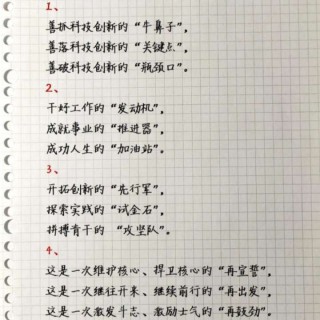 1、
善抓科技创新的“牛鼻子”，
善落科技创新的“关键点”，
善破科技创新的“瓶颈口”。
2、
干好工作的“发动机”，
成就事业的“推进器”，
成功人生的“加油站”。
3、
开拓创新的“先行军”，
探索实践的“试金石”，
拼搏肯干的 “攻坚队”。
4、
这是一次维护核心、捍卫核心的“再宣誓”，
这是一次继往开来、继续前行的“再出发”，
这是一次激发斗志、激励士气的“再鼓劲”。